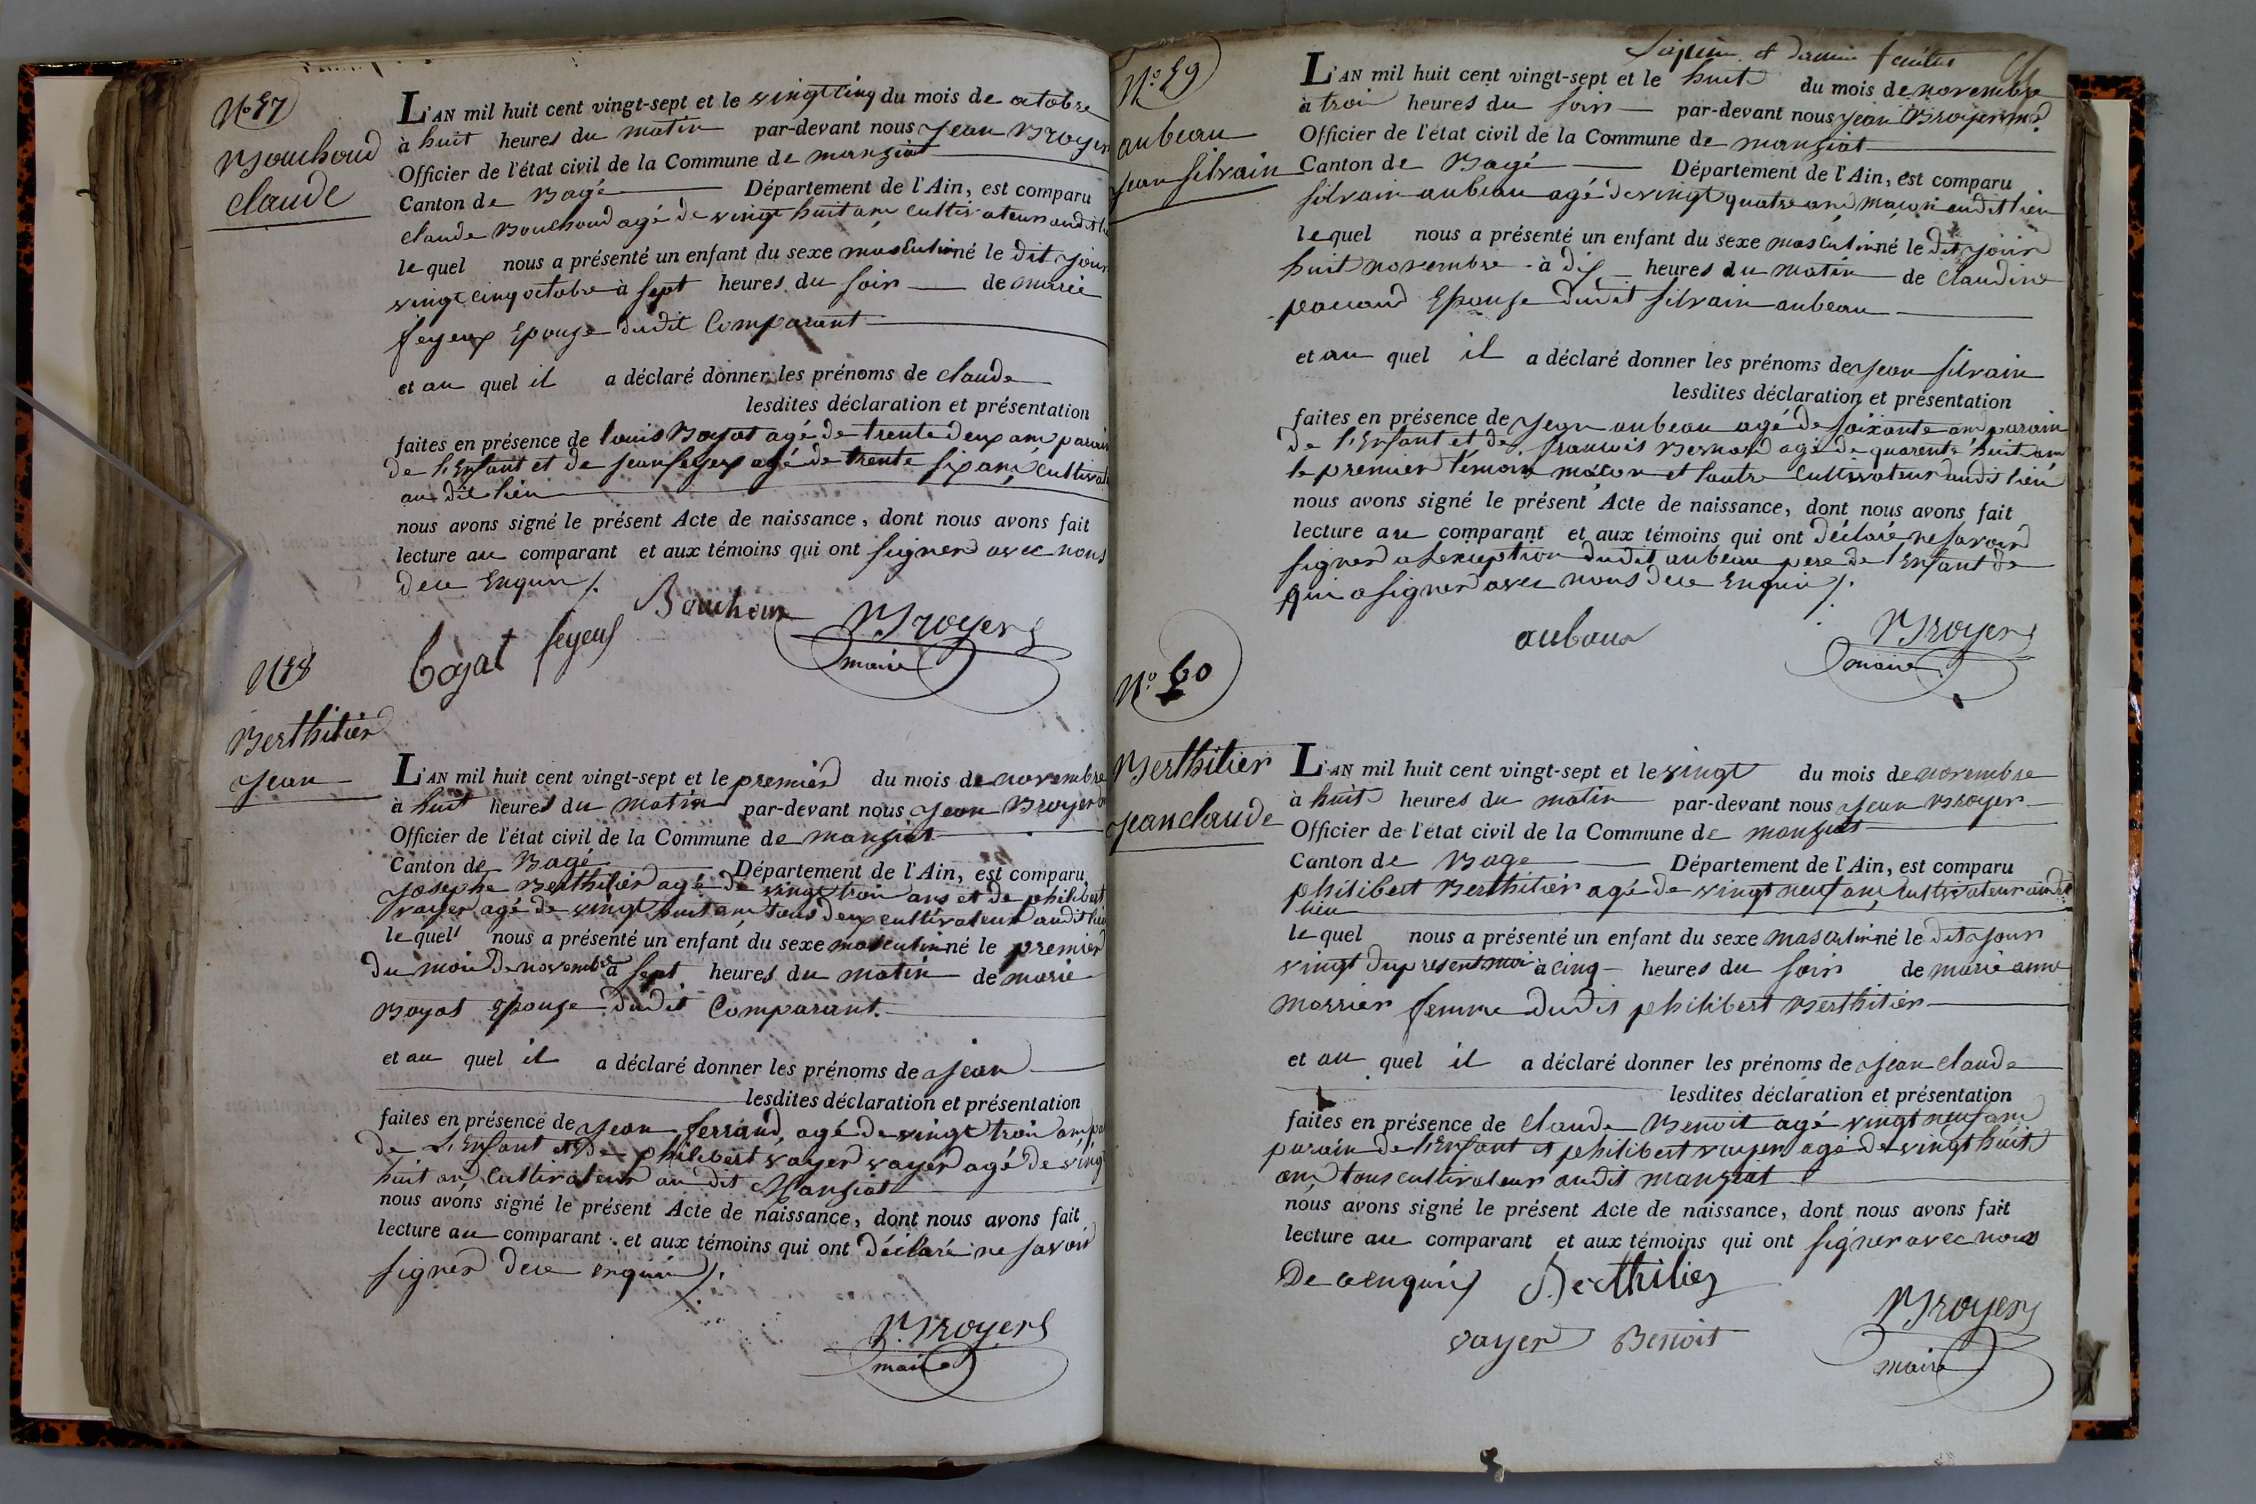 No 57
Bouchoud
claude
L'AN mil huit cent vingt-sept et le vingt cinq du mois de octobre
à huit heures du matin par-devant nous Jean Broyer
Officier de l'état civil de la Commune de manziat
Canton de Bagé Département de l'Ain, est comparu
claude Bouchoud agé de vingt huit ans cultivateur audit
le quel nous a présenté un enfant du sexe masculin né le dit jour
vingt cinq octobre à sept heures du soir de marie
feyeux Epouse dudit Comparant
et au quel il a déclaré donner les prénoms de claude
lesdites déclaration et présentation
faites en présence de louis Boyat agé de trente deux ans parain
de l'Enfant et de jean feyeux agé de trente six ans, cultivat
au dit lieu
nous avons signé le présent Acte de naissance, dont nous avons fait
lecture au comparant et aux témoins qui ont signer avec nous
dece Enquis /.
Bouchour
Broyer
boyat feyeux
maire
N 58
Berthilier
Jean
L'AN mil huit cent vingt-sept et le premier du mois de novembre
à huit heures du matin par-devant nous Jean Broyer
Officier de l'état civil de la Commune de manziat
Canton de Bagé Département de l'Ain, est comparu
Josephe Berthilier agé de vingt trois ans et de philibert
vayer agé de vingt huit ans tous deux cultivateur audit lieu
le quel nous a présenté un enfant du sexe masculin né le premier
du mois de novembre à sept heures du matin de marie
Boyat Epouse dudit Comparant.
et au quel il a déclaré donner les prénoms de Jean
lesdites déclaration et présentation
faites en présence de Jean ferrand, agé de vingt trois ans pa
de L'Enfant et de philibert vayer vayer agé de vingt
huit ans Cultivateur au dit Manziat
nous avons signé le présent Acte de naissance, dont nous avons fait
lecture au comparant et aux témoins qui ont déclaré ne savoir
signer dece enquis /.
Broyer
maire
No 59
aubeau
Jean Silvain
et dernier feuillet
L'AN mil huit cent vingt-sept et le huit du mois de novembre
à trois heures du soir par-devant nous Jean Broyer
Officier de l'état civil de la Commune de manziat
Canton de Bagé Département de l'Ain, est comparu
silvain aubeau agé de vingt quatre ans maçon audit lieu
le quel nous a présenté un enfant du sexe masculin né le dit jour
huit novembre à dix heures du matin de claudine
pauand Epouse dudit silvain aubeau
et au quel il a déclaré donner les prénoms de Jean silvain
lesdites déclaration et présentation
faites en présence de Jean aubeau agé de soixante ans parain
de l'Enfant et de francois Bernard agé de quarente huit ans
le premier témoin maçon et lautre Cultivateur audit lieu
nous avons signé le présent Acte de naissance, dont nous avons fait
lecture au comparant et aux témoins qui ont déclaré ne savoir
signer a lexception dudit aubeau pere de l'Enfant de
qui a signer avec nous dece Enquis /.
aubaux
Broyer
maire
No 60
Berthilier
jean claude
L'AN mil huit cent vingt-sept et le vingt du mois de novembre
à huit heures du matin par-devant nous Jean Broyer
Officier de l'état civil de la Commune de manziat
Canton de Bage Département de l'Ain, est comparu
philibert Berthilier agé de vingt neuf ans, Cultivateur audit
lieu
le quel nous a présenté un enfant du sexe masculin né le dit jour
vingt du present moi à cinq heures du soir de marie anne
morrier femme dudit philibert Berthilier
et au quel il a déclaré donner les prénoms de Jean claude
lesdites déclaration et présentation
faites en présence de claude Benoit agé vingt neuf ans
parain de l'Enfant et philibert vayer agé de vingt huit
ans tous cultivateur audit manziat
nous avons signé le présent Acte de naissance, dont nous avons fait
lecture au comparant et aux témoins qui ont signer avec nous
De ce enquis Berthilier
Broyer
vayer Benoit
maire